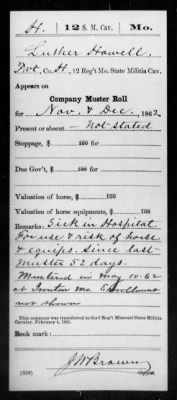 H. | 12 S. M. Cav. | Mo.
Luther Howell,
Pvt, Co. H, 12 Reg't Mo. State Militia Cav.
Appears on
Company Muster Roll
for Nov. & Dec., 1862.
Present or absent— Not Stated
Stoppage, $ 100 for
Due Gov't, $ 100 for
Valuation of horse, $ 100
Valuation of horse equipments, $ 100
Remarks: Sick in Hospital.
For use & risk of horse
& equips. Since last
muster 52 days.
Mustered in May 10-62
at Ironton Mo Enrollment
not shown
This company was transferred to the 3 Reg't Missouri State Militia
Cavalry, February 4, 1863.
Book mark:
J W Brown
(359) Copyist.